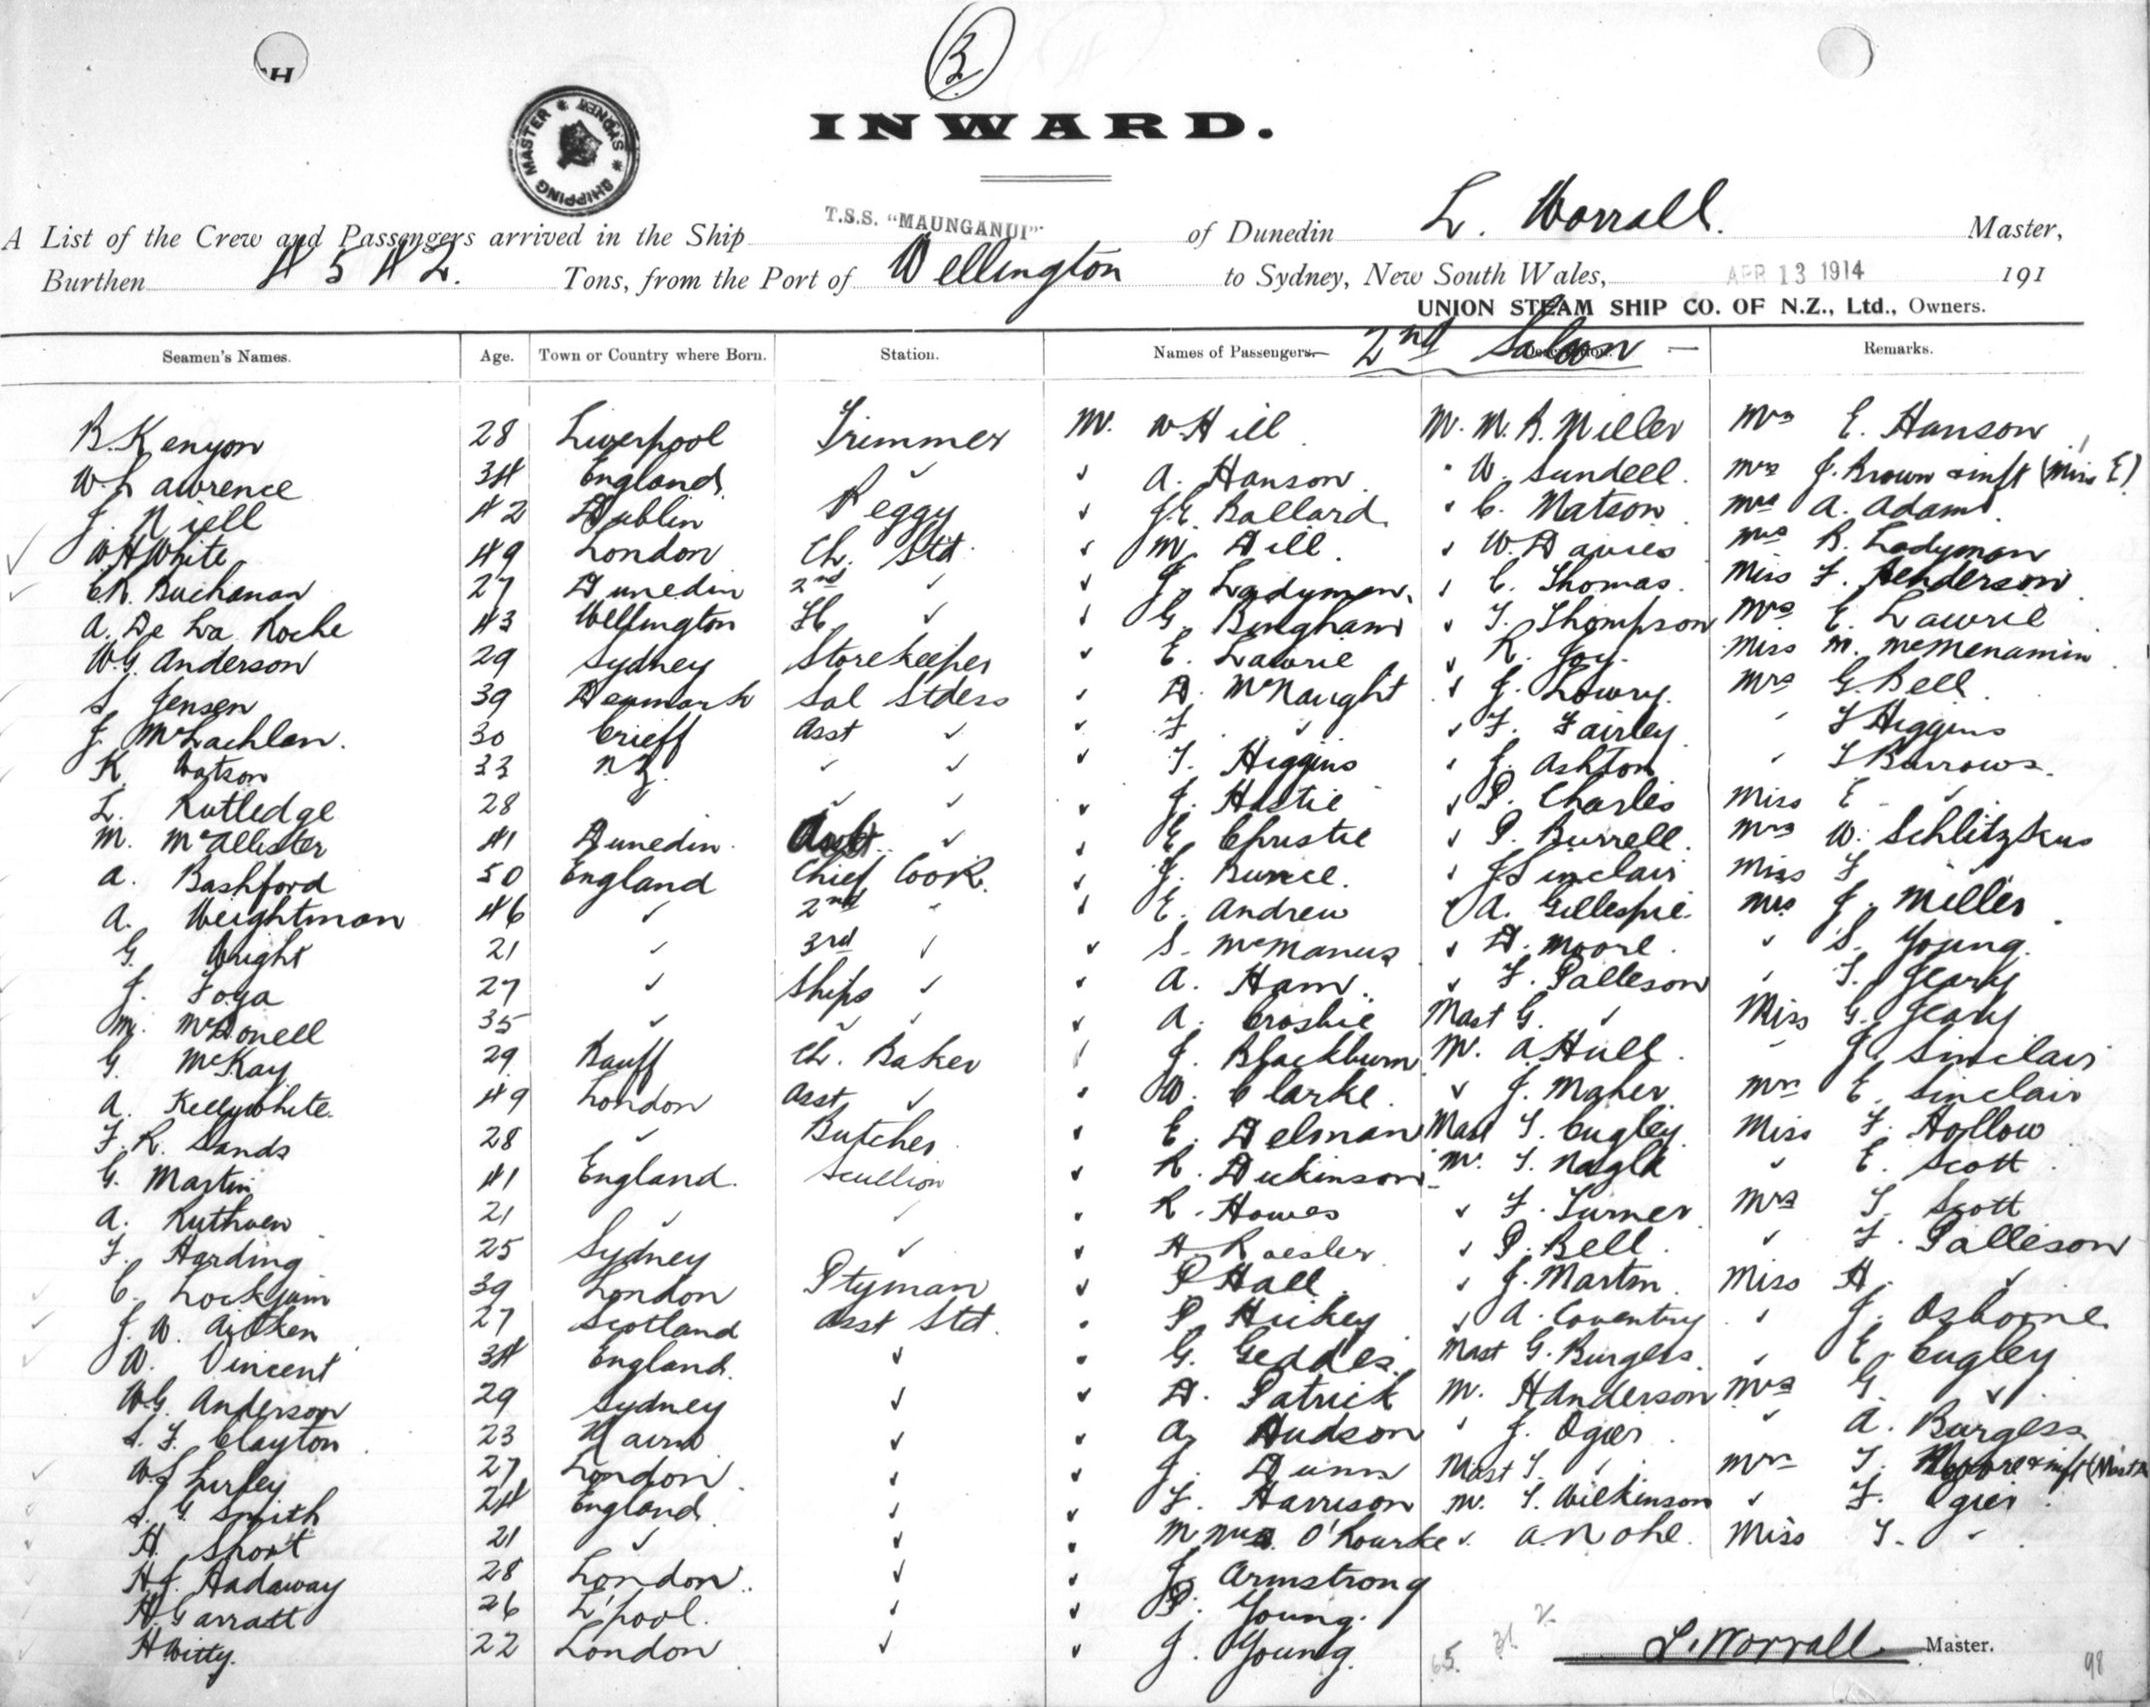 2.
INWARD.
SHIPPING MASTER * SYDNEY *
A List of the Crew and Passengers arrived in the Ship T.S.S. "MAUNGANUI" of Dunedin L. Worrall. Master,
Burthen 4542. Tons, from the Port of Wellington to Sydney, New South Wales, APR 13 1914 191
UNION STEAM SHIP CO. OF N.Z., Ltd., Owners.
Seamen's Names. Age. Town or Country where Born. Station. Names of Passengers. 2nd Saloon Description. Remarks.
R. Kenyon 28 Liverpool Trimmer Mr. W Hill Mr. M. R. Miller Mrs E. Hanson
W. Lawrence 34 England " " A. Hanson " W. Sundell. Mrs J. Brown & inft (Miss E)
J. Niell 42 Dublin Peggy " J.E. Ballard " C. Matson Mrs A. Adams
W.H. White 49 London Ch. Std. " M. Dill " W. Davies Mrs R. Ladyman
C.R. Buchanan 27 Dunedin 2nd " " J. Ladyman " C. Thomas. Miss F. Henderson
A. De La Roche 43 Wellington " " G. Bingham " T. Thompson Mrs E. Lawrie
W.G. Anderson 29 Sydney Storekeeper " E. Lawrie " R. Joy. Miss M. McMenamin
S. Jensen 39 Denmark Sal Stdess " D. McNaught " J. Lowry. Mrs G. Bell
J. McLachlan. 30 Crieff Asst " " F. " " F. Fairley " T Higgins
K. Watson 33 N.Z. " " " T. Higgins " J. Ashton " T Burrows.
L. Rutledge 28 " " " " J. Hastie " P. Charles Miss E. "
M. McAllister 41 Dunedin Asst. " " E. Christie " P. Burrell. Mrs W. Schlitzkus
A. Bashford 50 England Chief Cook. " J. Bunce. " J Sinclair Miss F "
A. Weightman 46 " 2nd " " E. Andrew " A. Gillespie. Mrs J. Miller
G. Wright 21 " 3rd " " S. McManus " D. Moore. " S. Young.
J. Foya 27 " Ships " " A. Ham. " F. Palleson " T. Geary
M. McDonell 35 " " " " A. Crosbie Mast G. " Miss G. Geary
G. McKay 29 Banff Ch. Baker " J. Blackburn Mr. A Hull. " J. Sinclair
A. Kellywhite. 49 London Asst " " W. Clarke. " J. Maher Mrs E. Sinclair
F. R. Sands 28 " Butcher. " E. Delman Mast T. Cugley. Miss F. Hollow
G. Martin 41 England. Scullion " R. Dickinson Mr. T. Nagle " E. Scott
A. Ruthven 21 " " " R. Howes " F. Turner Mrs T. Scott
F. Harding 25 Sydney " " H. Raesler " P. Bell. " F. Palleson
C. 39 London Ptyman " P Hall " J. Martin. Miss H. "
J. W. Aitken 27 Scotland Asst Std. " P. Hickey " A. Coventry " J. Osborne
W. Vincent 34 England. " " G. Geddes. Mast G. Burgess. " E. Cugley
W.G. Anderson 29 Sydney " " D. Patrick Mr. H Anderson Mrs G. "
S. F. Clayton 23 Nairn " " A. Hudson " J. Ogier. " A. Burgess
W. Shurley 27 London " " J. Dunn Mast T. " Mrs T. Moore & inft (Mast
S. G. Smith 24 England. " " F. Harrison Mr. T. Wilkinson " F. Ogier.
H. Short 21 " " " M O'Rourke " A. Nohl. Miss T. "
H.J. Hadaway 28 London. " " J. Armstrong
H. Garratt 26 L'pool. " " P. Young.
H Witty. 22 London " " J. Young.
65. 31. 2. L. Worrall. Master. 98